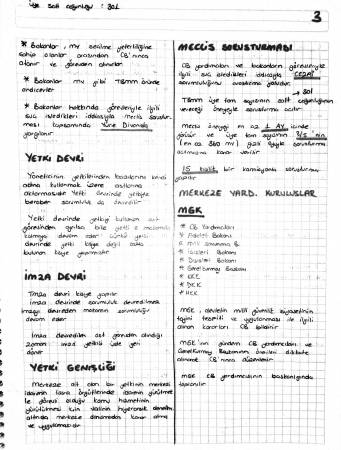 üye salt çoğunluğu : 301
3
* Bakanlar, mv seçilme yeterliliğine
sahip olanlar arasından CB'nınca
atanır ve görevden alınırlar
* Bakanlar mv gibi TBMM önünde
andiçerler
* Bakanlar hakkında görevleriyle ilgili
suç işledikleri iddiasıyla meclis soruştur-
ması kapsamında Yüce Divanda
yargılanır
YETKİ DEVRİ
Yöneticinin yetkilerinden bazılarını kendi
adına kullanmak üzere astlarına
aktarmasıdır Yetki devrinde yetkiyle
beraber sorumluluk da devredilir
Yetki devrinde yetkiyi kullanan ast
görevinden ayrılsa bile yetki o makamda
kalmaya devam eder Çünkü yetki
devrinde yetki kişiye değil
bulunan kişiye yapılmaktadır
İMZA DEVRİ
İmza devri kişiye yapılır
İmza devrinde sorumluluk devredilmez
imzayı devreden makamın sorumluluğu
devam eder
İmza devredilen ast görevden alındığı
zaman imza yetkisi üste geri
döner
YETKİ GENİŞLİĞİ
Merkeze ait olan bir yetkinin merkezi
idarenin taşra örgütlerinde idarenin yürütmek
ile görevli olduğu kamu hizmetinin
yürütülmesi için valinin hiyerarşik denetim
altında merkeze danışmadan karar alma
ve uygulamasıdır
MECLİS SORUŞTURMASI
CB yardımcıları ve bakanların görevleriyle
ilgili suç işledikleri iddiasıyla CEZAİ
sorumluluğunu araştırma yoludur
→ 301
TBMM üye tam sayısının salt çoğunluğunun
vereceği önergeyle soruşturma açılır
Meclis önergeyi en az 1 AY içinde
görüşür üye tam sayısının 3/5 'nin
(en az 360 mv) gizli oyuyla soruşturma
açılmasına karar verilir
15 kişilik bir komisyonla soruşturma
yapılır
MERKEZE YARD. KURULUŞLAR
MGK
* CB Yardımcıları
* Adalet Bakanı
* Milli Savunma B.
* İçişleri Bakanı
* Dışişleri Bakanı
* Genelkurmay Başkanı
* KKK
* DKK
* HKK
MGK, devletin milli güvenlik siyasetinin
tayini tespiti ve uygulanması ile ilgili
alınan kararları CB bildirir
MGK'nın gündemi CB yardımcıları ve
Genelkurmay Başkanının önerileri dikkate
alınarak CB'nınca düzenlenir
MGK CB yardımcısının başkanlığında
toplanır